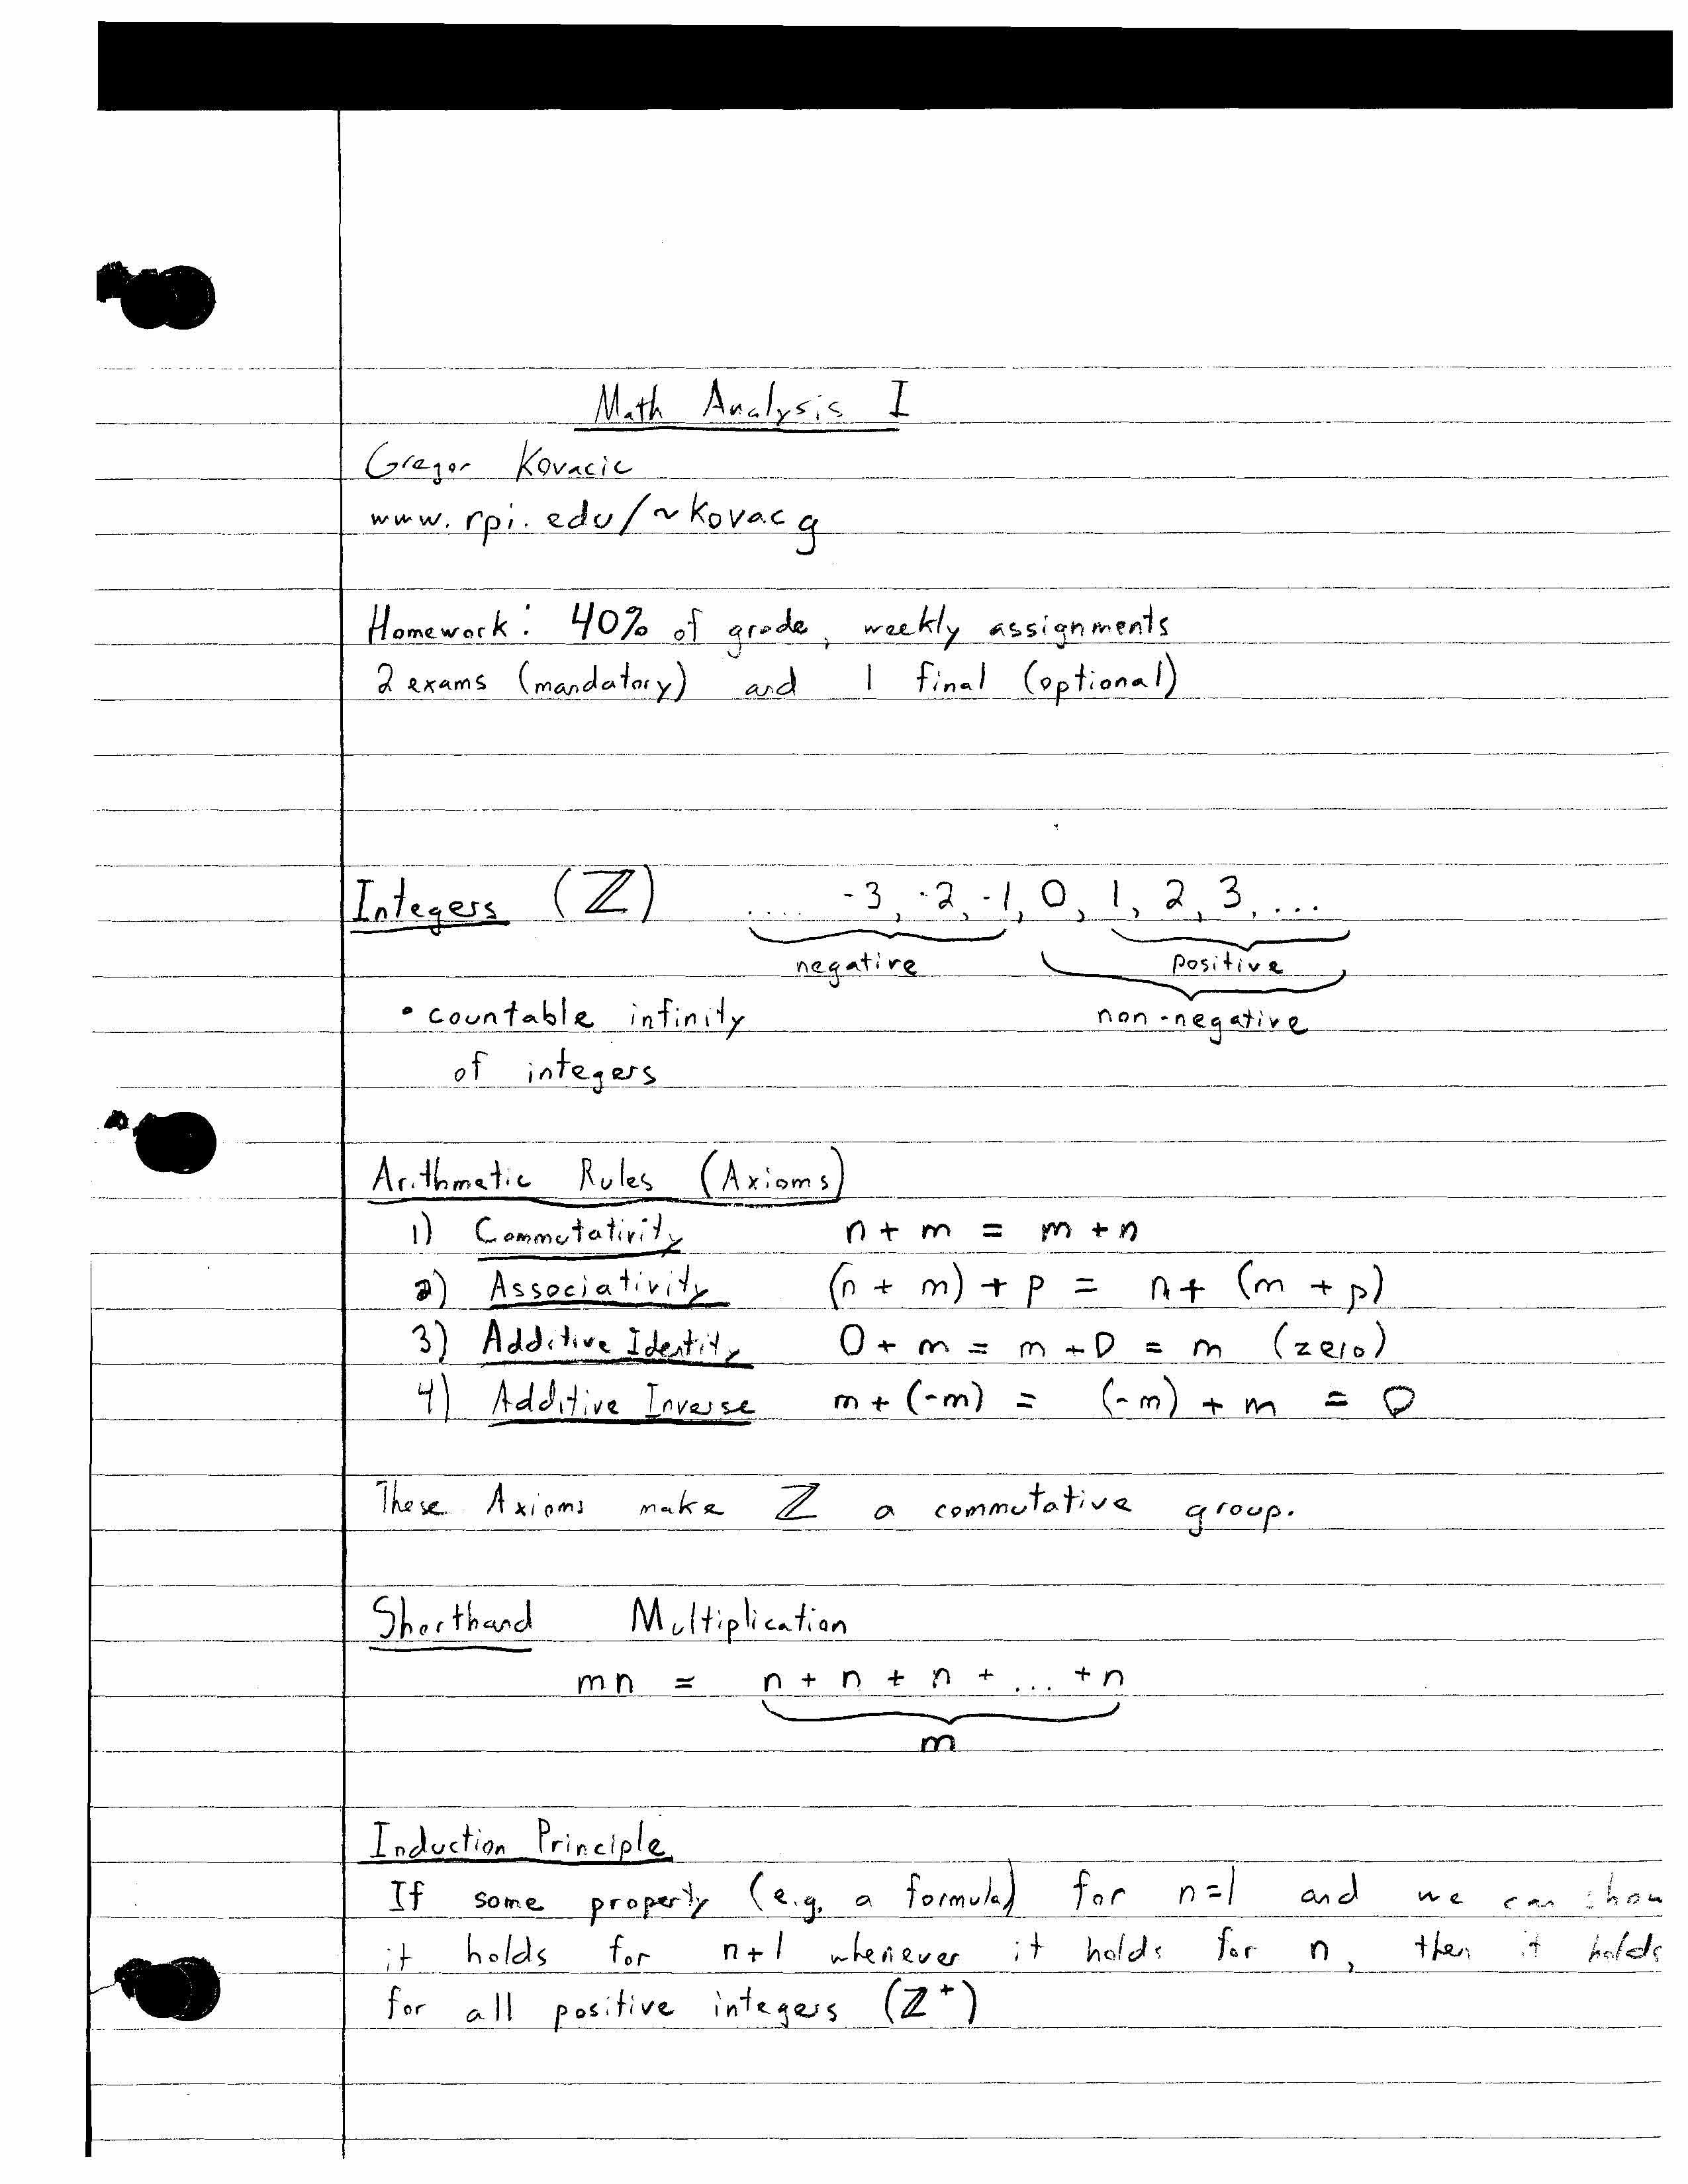 Math Analysis I
Gregor Kovacic
www.rpi.edu/~kovacg
Homework: 40% of grade, weekly assignments
2 exams (mandatory) and 1 final (optional)
Integers (ℤ) .... -3, -2, -1, 0, 1, 2, 3, ...
negative positive
• countable infinity non-negative
of integers
Arithmetic Rules (Axioms)
1) Commutativity n + m = m + n
2) Associativity (n + m) + p = n + (m + p)
3) Additive Identity 0 + m = m + 0 = m (zero)
4) Additive Inverse m + (-m) = (-m) + m = 0
These Axioms make ℤ a commutative group.
Shorthand Multiplication
mn = n + n + n + ... + n
m
Induction Principle
If some property (e.g. a formula) for n=1 and we can show
it holds for n+1 whenever it holds for n, then it holds
for all positive integers (ℤ⁺)